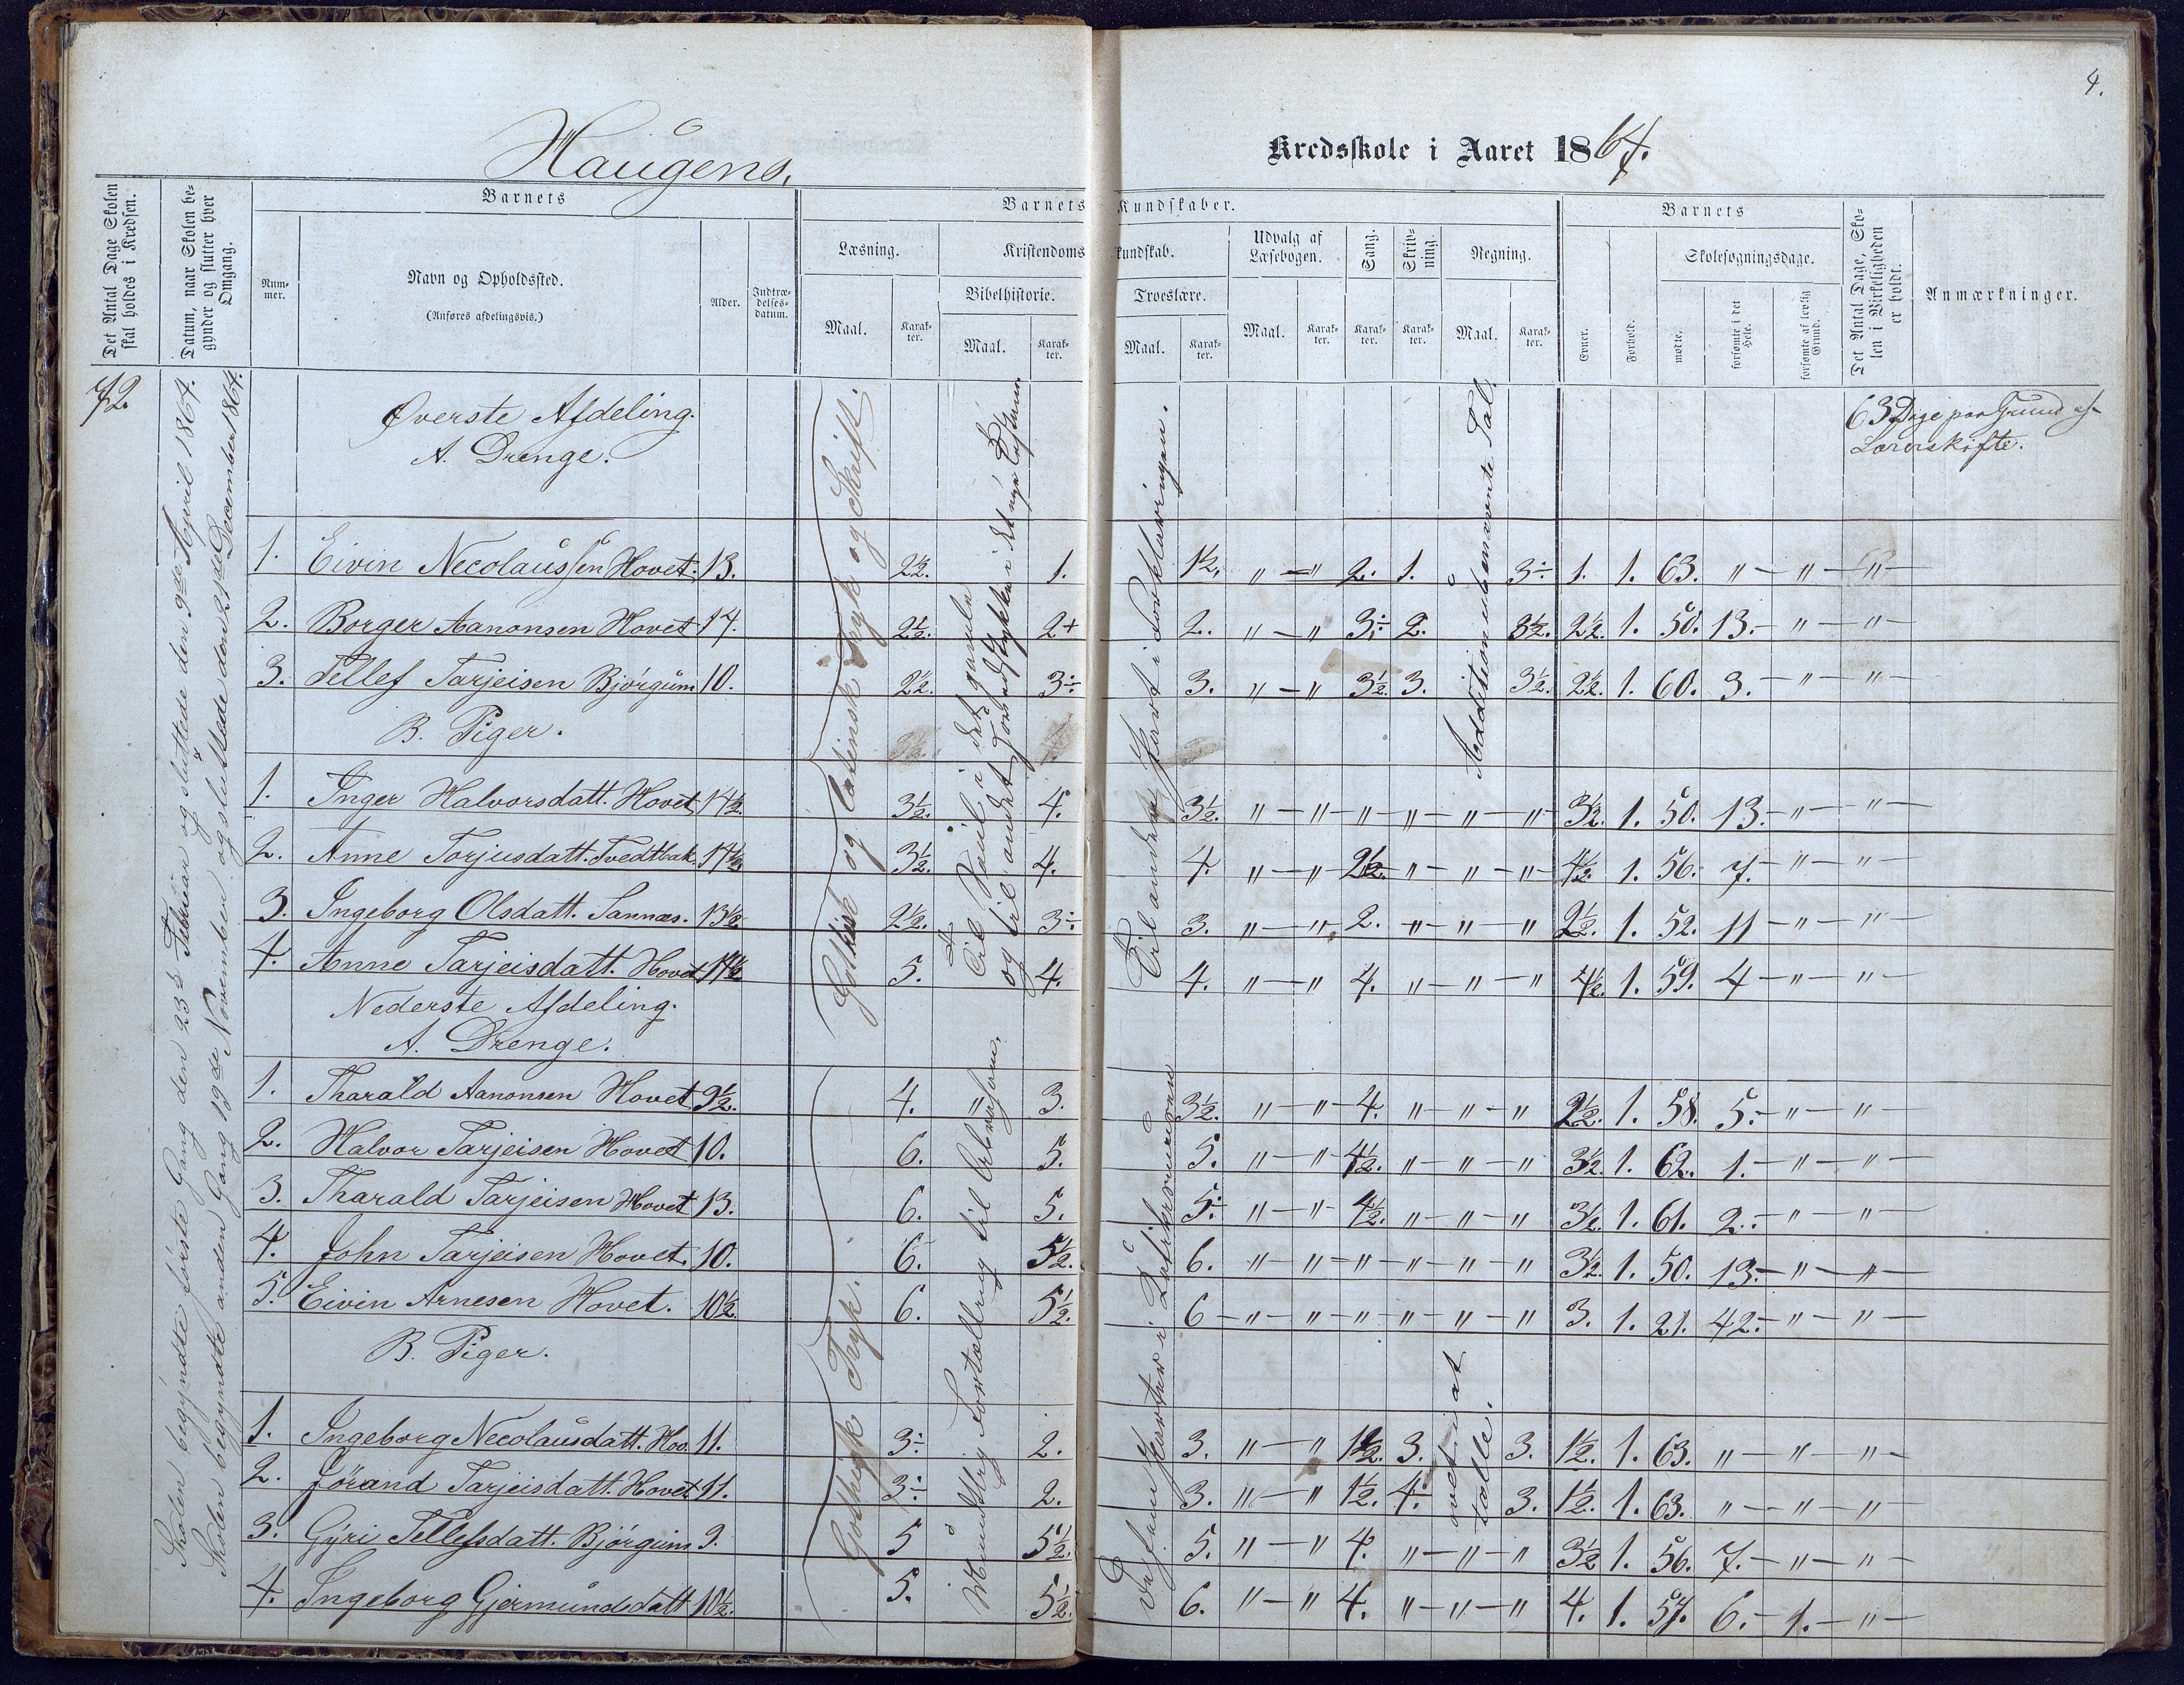 4.
Haugens,
Kredsskole i Aaret 1864.
Det Antal Dage Skolen skal holdes i Kredsen.
Datum, naar Skolen begynder og slutter hver Omgang.
Barnets
Barnets Kundskaber.
Barnets
Det Antal Dage, Skolen i Virkeligheden er holdt.
Anmærkninger.
Nummer.
Navn og Opholdssted.
(Anføres afdelingsvis.)
Alder.
Indtrædelsesdatum.
Læsning.
Kristendomskundskab.
Udvalg af Læsebogen.
Sang.
Skrivning.
Regning.
Evner.
Forhold.
Skolesøgningsdage.
Bibelhistorie.
Troeslære.
mødte.
forsømte i det Hele.
forsømte af lovlig Grund.
Maal.
Karakter.
Maal.
Karakter.
Maal.
Karakter.
Maal.
Karakter.
Karakter.
Karakter.
Maal.
Karakter.
72.
Skolen begyndte første Gang den 23de Februar og sluttede den 9de April 1864.
Skolen begyndte anden Gang 19de November og sluttede den 21de December 1864.
Øverste Afdeling.
A. Drenge.
63 Dage paa Grund af
Lærerskifte.
Gothisk og latinsk Tryk og Skrift.
og til andet Hovedstykke i det nye Testam.
Til andet Part i Forklaringen.
Addition ubenævnte Tal.
1. Eivin Necolaussen Hovet. 13. 2½. 1. 1½. " — " 2. 1. 3÷ 1. 1. 63. " — " — " —
2. Borger Aanonsen Hovet 14. 2½. 2+ 2. " — " 3÷ 2. 3½. 2½. 1. 50. 13. — " — " —
3. Tellef Tarjeisen Bjørgum 10. 2½. 3÷ 3. " — " 3½. 3. 3½. 2½. 1. 60. 3. — " — " —
B. Piger.
1. Inger Halvorsdatt. Hovet 14½. 3½. 4. 3½. " — " — " — " — " — " 3½. 1. 50. 13. — " — " —
2. Anne Torjusdatt. Tvedtbak. 14½. 3½. 4. 4. " — " 2½. " — " — " 4½. 1. 56. 7. — " — " —
3. Ingeborg Olsdatt. Sannæs. 13½. 2½. 3÷ 3. " — " 2. " — " — " 2½. 1. 52. 11 — " — " —
4. Anne Tarjeisdatt. Hovet 14½ 5. 4. 4. " — " 4. " — " — " 4½. 1. 59. 4 — " — " —
Nederste Afdeling.
A. Drenge.
Gothisk Tryk.
Mundtlig Fortælling til Abraham.
i Katekismusen
1. Tharald Aanonsen Hovet 9½. 4. " 3. 3½. " — " — 4. " — " — " 2½. 1. 58. 5. — " — " —
2. Halvor Tarjeisen Hovet 10. 6. 5. 5. " — " — 4½. " — " — " 3½. 1. 62. 1. — " — " —
3. Tharald Tarjeisen Hovet 13. 6. 5. 5÷ " — " 4½. " — " — " 3½. 1. 61. 2. — " — " —
4. John Tarjeisen Hovet. 10. 6. 5½. 6. " — " — " — " — " — " 3½. 1. 50. 13. — " — " —
5. Eivin Arnesen Hovet. 10½. 6. 5½. 6 — " — " — " — " — " — " 3. 1. 21. 42. — " — " —
B. Piger.
øvet i at
tælle.
1. Ingeborg Necolausdatt. Hov. 11. 3÷ 2. 3. " — " 1½. 3. 3. 1½. 1. 63. " — " — " —
2. Jórand Tarjeisdatt. Hovet 11. 3÷ 2. 3. " — " 1½. 4. 3. 1½. 1. 63. " — " — " —
3. Gyri Tellefsdatt. Bjørgum 9. 5 5½. 5. " — " 4. " — " — " 3½ 1. 56. 7. — " — " —
4. Ingeborg Gjermundsdatt 10½. 5. 5½. 6. " — " 4. " — " — " 4. 1. 57. 6. — 1. — " —